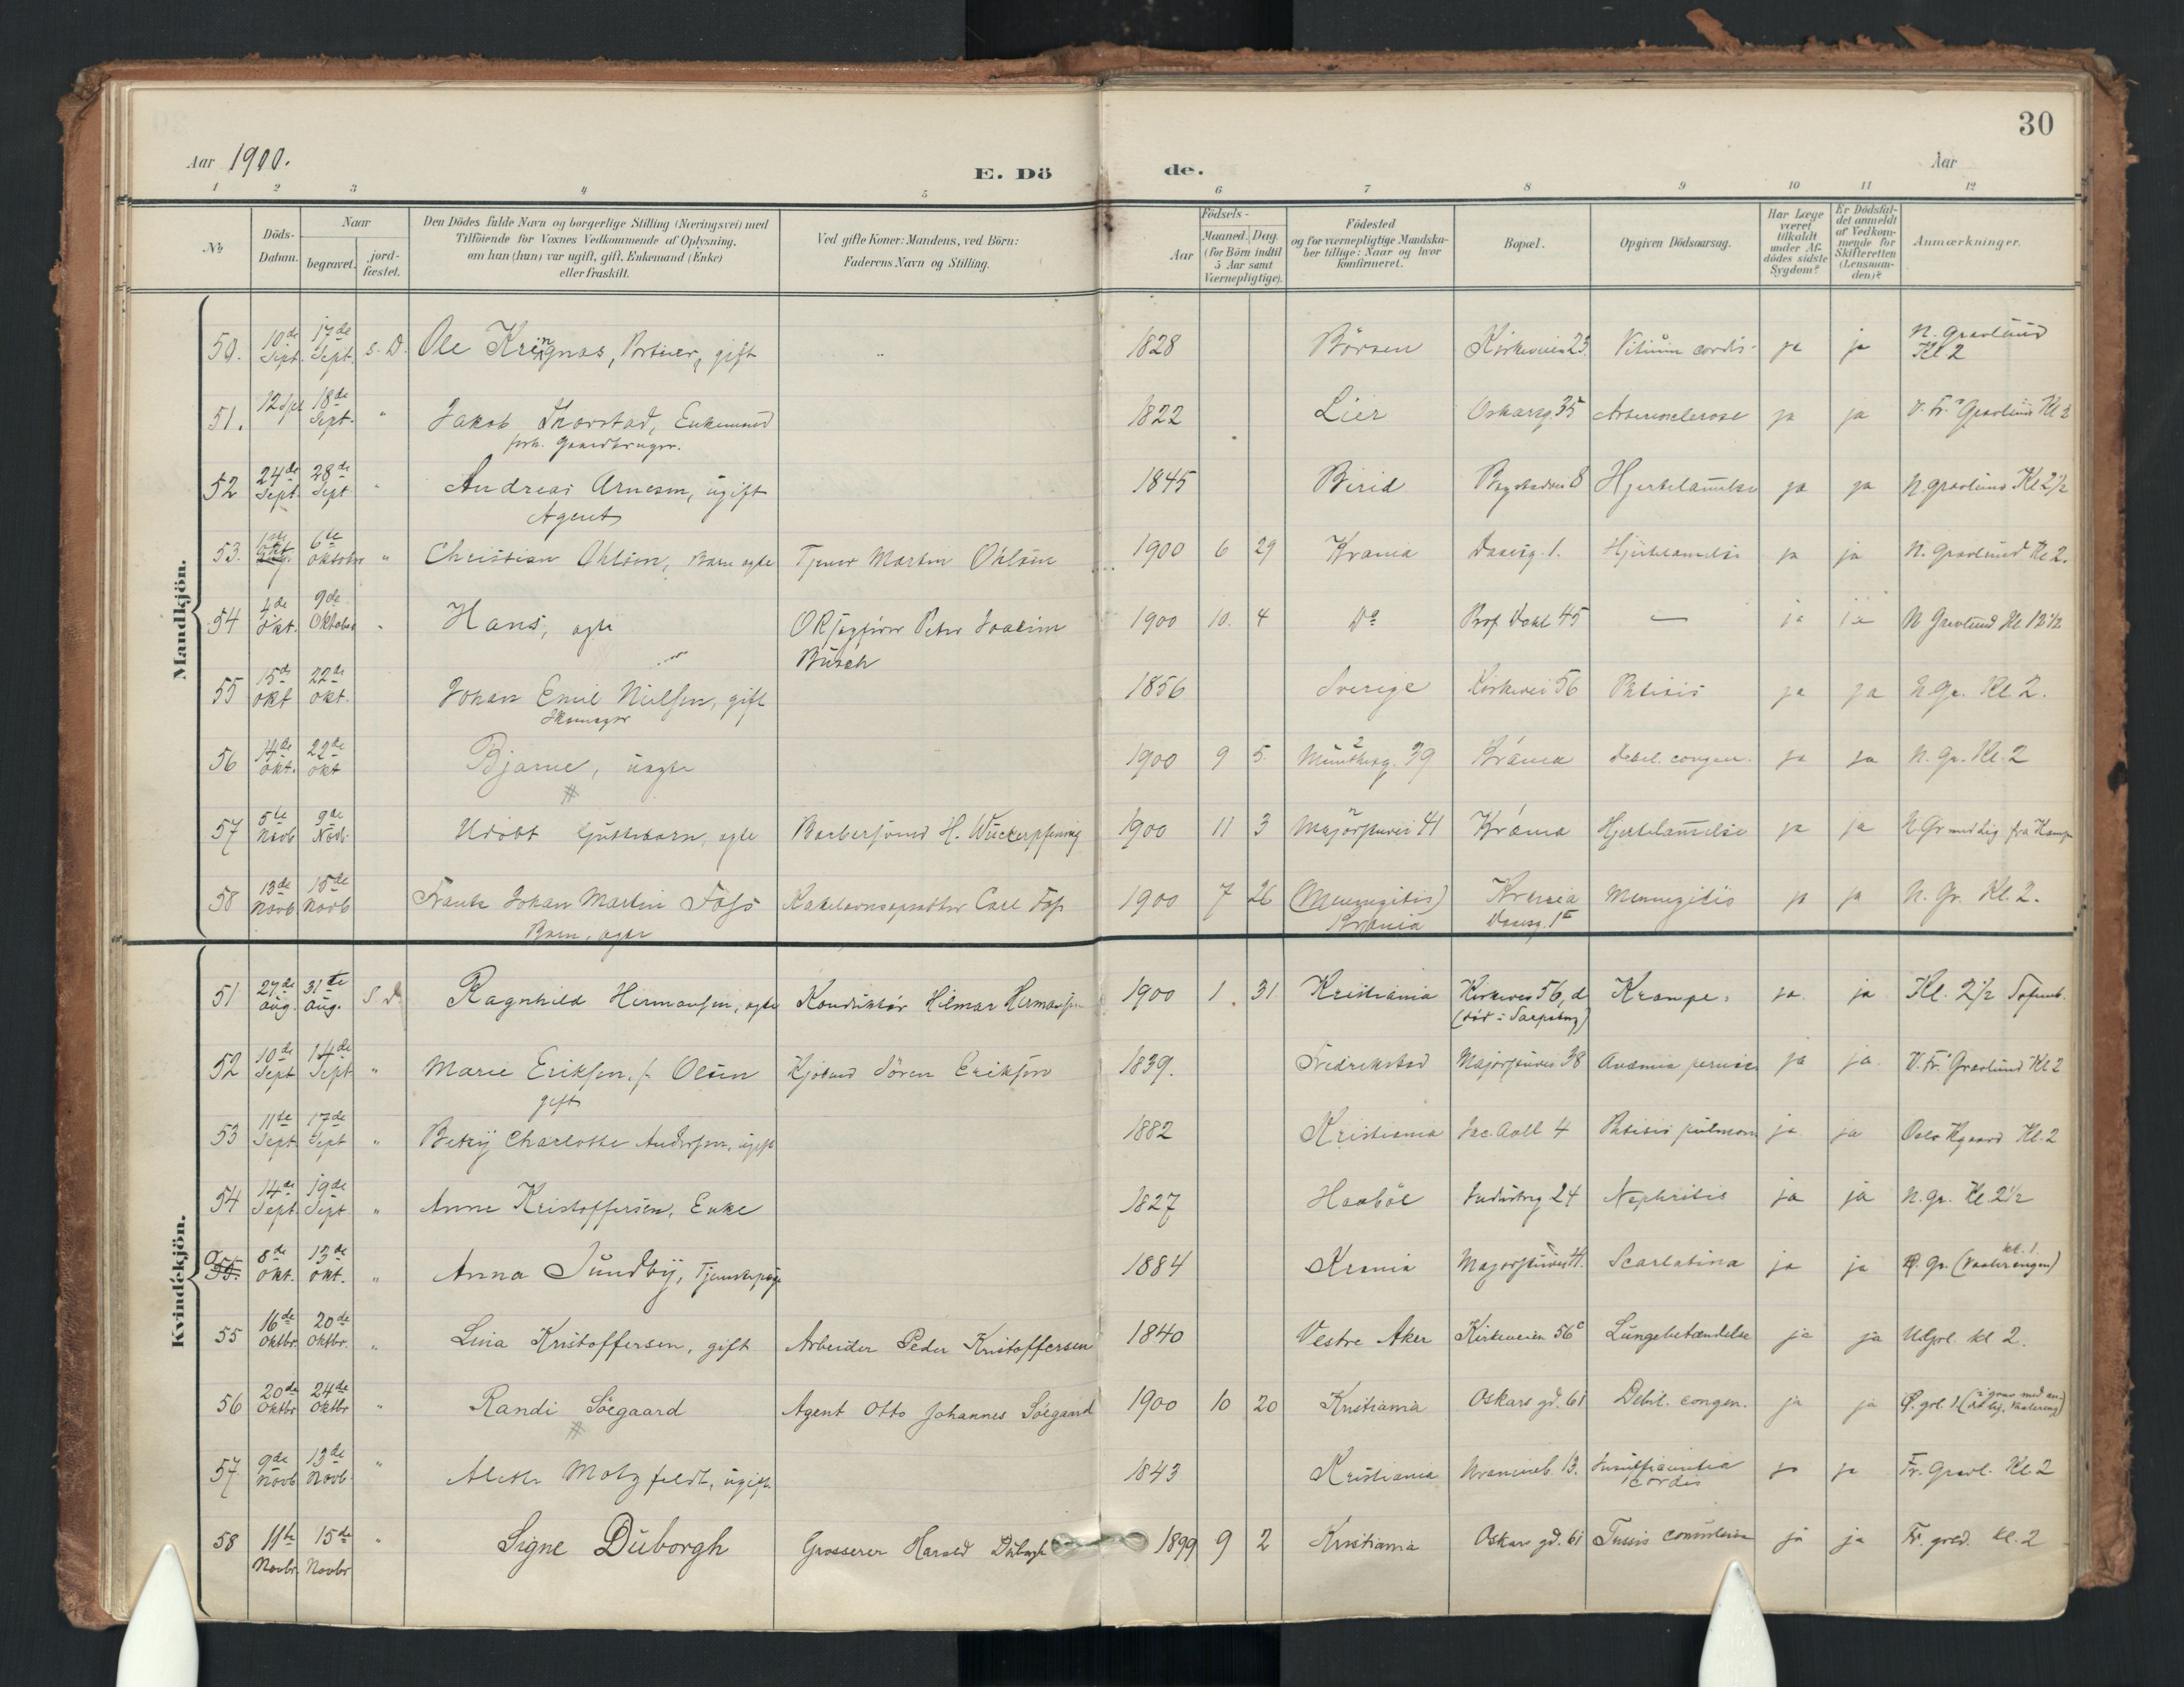 30
Aar 1900.
E. Dö
de.
Aar
1 2 3 4 5 6 7 8 9 10 11 12
No
Döds-Datum.
Naar
begravet.
jord-fæstet.
Den Dödes fulde Navn og borgerlige Stilling (Næringsvei) med
Tilföiende for Voxnes Vedkommende af Oplysning,
om han (hun) var ugift, gift, Enkemand (Enke)
eller fraskilt.
Ved gifte Koner: Mandens, ved Börn:
Faderens Navn og Stilling.
Aar
Födsels-
Maaned. Dag.
(for Börn indtil
5 Aar samt
Værnepligtige).
Födested
og for værnepligtige Mandska-
ber tillige: Naar og hvor
konfirmeret.
Bopæl.
Opgiven Dödsaarsag.
Har Læge
været
tilkaldt
under Af-
dödes sidste
Sygdom?
Er Dödsfal-
det anmeldt
af Vedkom-
mende for
Skifteretten
(Lensman-
den)?
Anmærkninger.
Mandkjön.
50. 10de Sept. 17de Sept. S. D. Ole Portner, gift 1828 Börsen Kirkeveien 23. Vitium cordis ja ja N. Gravlund Kl 2
51. 12 Spt 18de Sept. " Jakob Thorstad, Enkemand 1822 Lier Oskarsg. 35 Arteriosclerose ja ja V. Fr. Gravlund Kl 2
forh. Gaardbruger.
52 24de Sept. 28de Sept " Andreas Arnesen, ugift 1845 Birid 8 Hjertelammelse ja ja N. gravlund Kl 2½
Agent
53. 6te Oktober " Christian Ohlson, Barn ægte Tjener Martin Ohlson 1900 6 29 Krania Daasg. 1. Hjertelammelse ja ja N. Gravlund Kl 2.
54 4de Okt. 9de Oktober " Hans, ægte ORsagfører Peter Joakim 1900 10. 4 Do Prof Dahl 45 — ja ja N Gravlund Kl 12½
Busch
55 15de Okt 22de Okt. Johan Emil Nielsen, gift 1856 Sverige Kirkevei 56 Phtisis ja ja N. Gr. Kl. 2.
Skomager
56 14de Okt. 22de Okt Bjarne, uægte 1900 9 5. 39 Krania debil. congen. ja ja N. Gr. Kl. 2
#
57 5te Novb 9de Novb. Udöbt Guttebarn, ægte Barbersvend H. Wuckerpfennig 1900 11 3 Majorstuvei 41 Krania Hjertelammelse ja ja N. Gr
58 13de Novb 15de Novb Frantz Johan Martin Foss Kakelovnsopsætter Carl Foss 1900 7 26 (Meningitis) Krania Meningitis ja ja N. Gr. Kl. 2.
Barn, ægte Krania Daasg. 1
Kvindekjön.
51 27de Aug. 31te Aug. S D. Ragnhild Hermansen, ægte Konduktör Hilmar Hermansen 1900 1. 31 Kristiania Kirkevei 56, d Krampe. ja ja Kl. 2½
(död i Sarpsborg)
52 10de Sept 14de Sept " Marie Eriksen, f. Olsen Sören Eriksen 1839. Fredrikstad Majorstuvei 38 Anæmia pernic ja ja V. Fr. Gravlund Kl 2
gift
53 11te Sept. 17de Sept " Betzy Charlotte Andersen, ugift 1882 Kristiania Jac. Aall 4 Phtisis pulmon ja ja Oslo Kgaard Kl. 2
54 14de Sept. 19de Sept. " Anne Kristoffersen, Enke 1827 Haabøl Industrig 24 Nephritis ja ja N. gr. Kl. 2½
55. 8de Okt. 13de Okt. " Anna Sundby, Tjenestepige 1884 Krania Majorstuvei Scarlatina ja ja Gr. (Vaalerengen) kl. 1.
55 16de Oktbr. 20de Oktbr. " Lina Kristoffersen, gift Arbeider Peder Kristoffersen 1840 Vestre Aker Kirkeveien 56c Lungebetændelse ja ja kl 2.
56 20de Oktbr 24de Oktbr " Randi Söegaard Agent Otto Johannes Söegaard 1900 10 20 Kristiania Oskars gd. 61 Debil. congen. ja ja
#
57 9de Novb 13de Novb " Motzfeldt, ugift. 1843 Kristiania 13. Insufficientia ja ja Fr. Gravl. Kl. 2
cordis
58 11te Novbr. 15de Novbr " Signe Duborgh Grosserer Harald Duborgh 1899 9 2 Kristiania Oskars gd. 61 Tussis convulsiva ja ja Fr. kl. 2